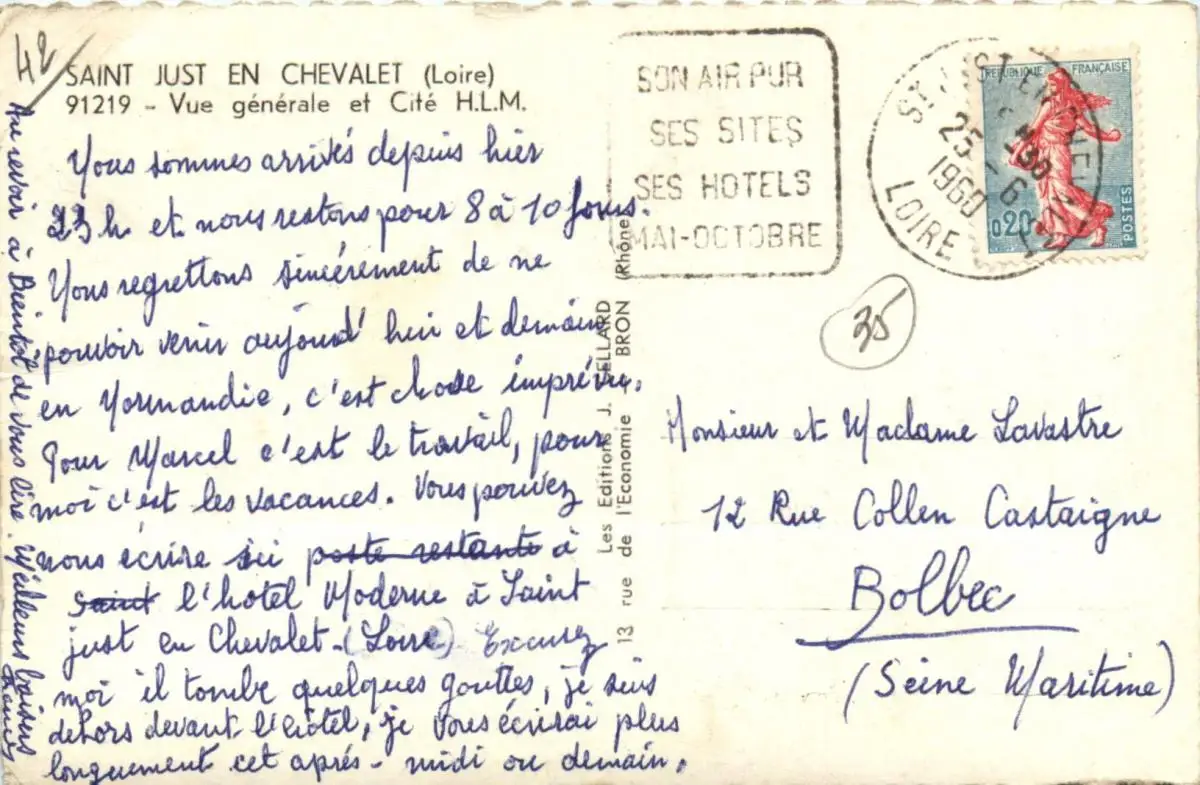 42
SAINT JUST EN CHEVALET (Loire)
91219 - Vue générale et Cité H.L.M.
Nous sommes arrivés depuis hier
23 h et nous restons pour 8 à 10 jours.
Nous regrettons sincérement de ne
pouvoir venir aujourd'hui et demain
en Normandie, c'est chose imprévue.
Pour Marcel c'est le travail, pour
moi c'est les vacances. Vous pouvez
nous écrire ici poste restante à
Saint l'hotel Moderne à Saint
just en Chevalet - (Loire) Excusez
moi il tombe quelques gouttes, je suis
dehors devant l'hôtel, je vous écrirai plus
longuement cet après-midi ou demain.
Au revoir à Bientôt de vous lire. Meilleurs baisers
Les Editions J. CELLARD
13 rue de l'Economie - BRON (Rhône)
SON AIR PUR
SES SITES
SES HOTELS
MAI-OCTOBRE
ST JUST EN CHEVALET
25 - 6
1960
LOIRE
REPUBLIQUE FRANÇAISE
0,20
POSTES
35
Monsieur et Madame Lavastre
12 Rue Collen Castaigne
Bolbec
(Seine Maritime)